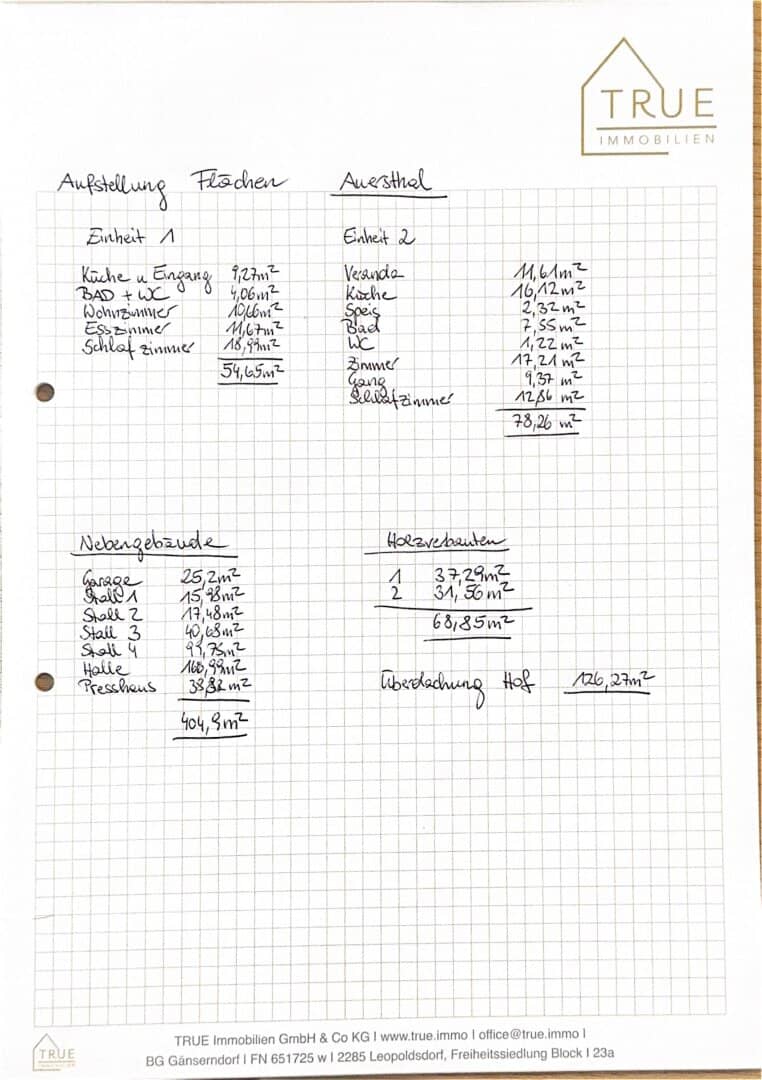 TRUE
IMMOBILIEN
Aufstellung Flächen Auersthal
Einheit 1
Küche u Eingang 9,27m²
BAD + WC 4,06m²
Wohnzimmer 10,66m²
Esszimmer 11,67m²
Schlafzimmer 18,99m²
54,65m²
Einheit 2
Veranda 11,61m²
Küche 16,12m²
Speis 2,32m²
Bad 7,55m²
WC 1,22m²
Zimmer 17,21m²
Gang 9,37 m²
Schlafzimmer 12,86 m²
78,26 m²
Nebengebäude
Garage 25,2m²
Stall 1 15,98m²
Stall 2 17,48m²
Stall 3 40,68m²
Stall 4 99,75m²
Halle
Presshaus
404,9m²
Holzverbauten
1 37,29m²
2 31,56m²
68,85m²
Überdachung Hof 126,27m²
TRUE
IMMOBILIEN
TRUE Immobilien GmbH & Co KG I www.true.immo I office@true.immo I
BG Gänserndorf I FN 651725 w I 2285 Leopoldsdorf, Freiheitssiedlung Block I 23a